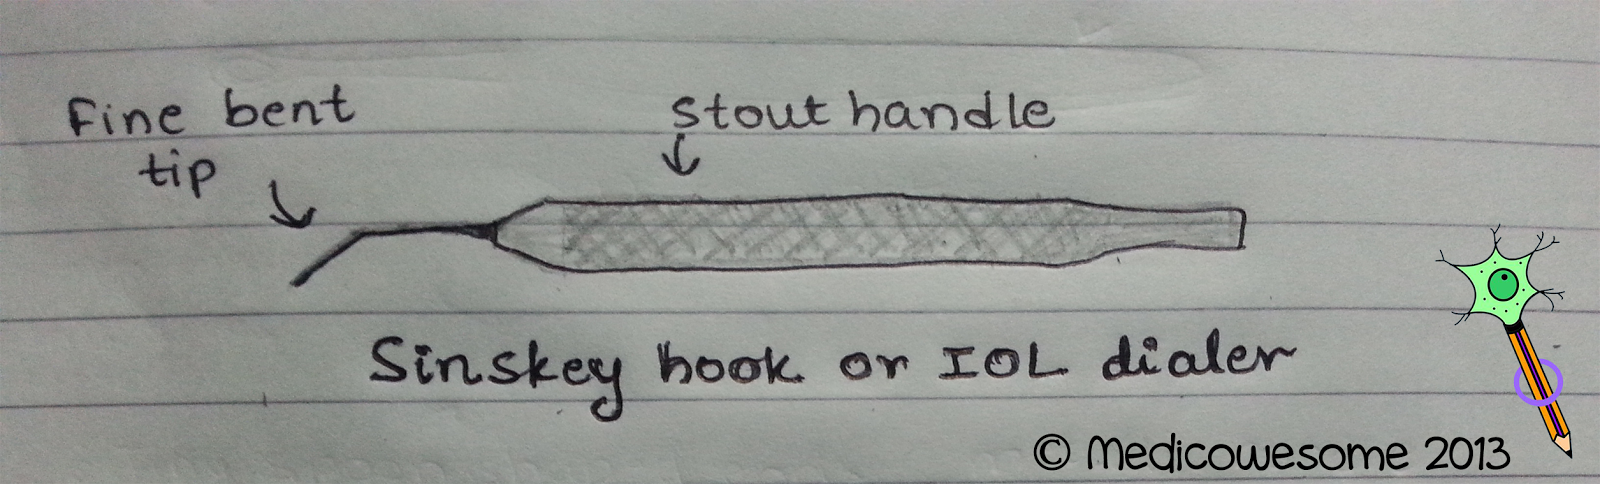 Fine bent
tip
stout handle
Sinskey hook or IOL dialer
© Medicowesome 2013